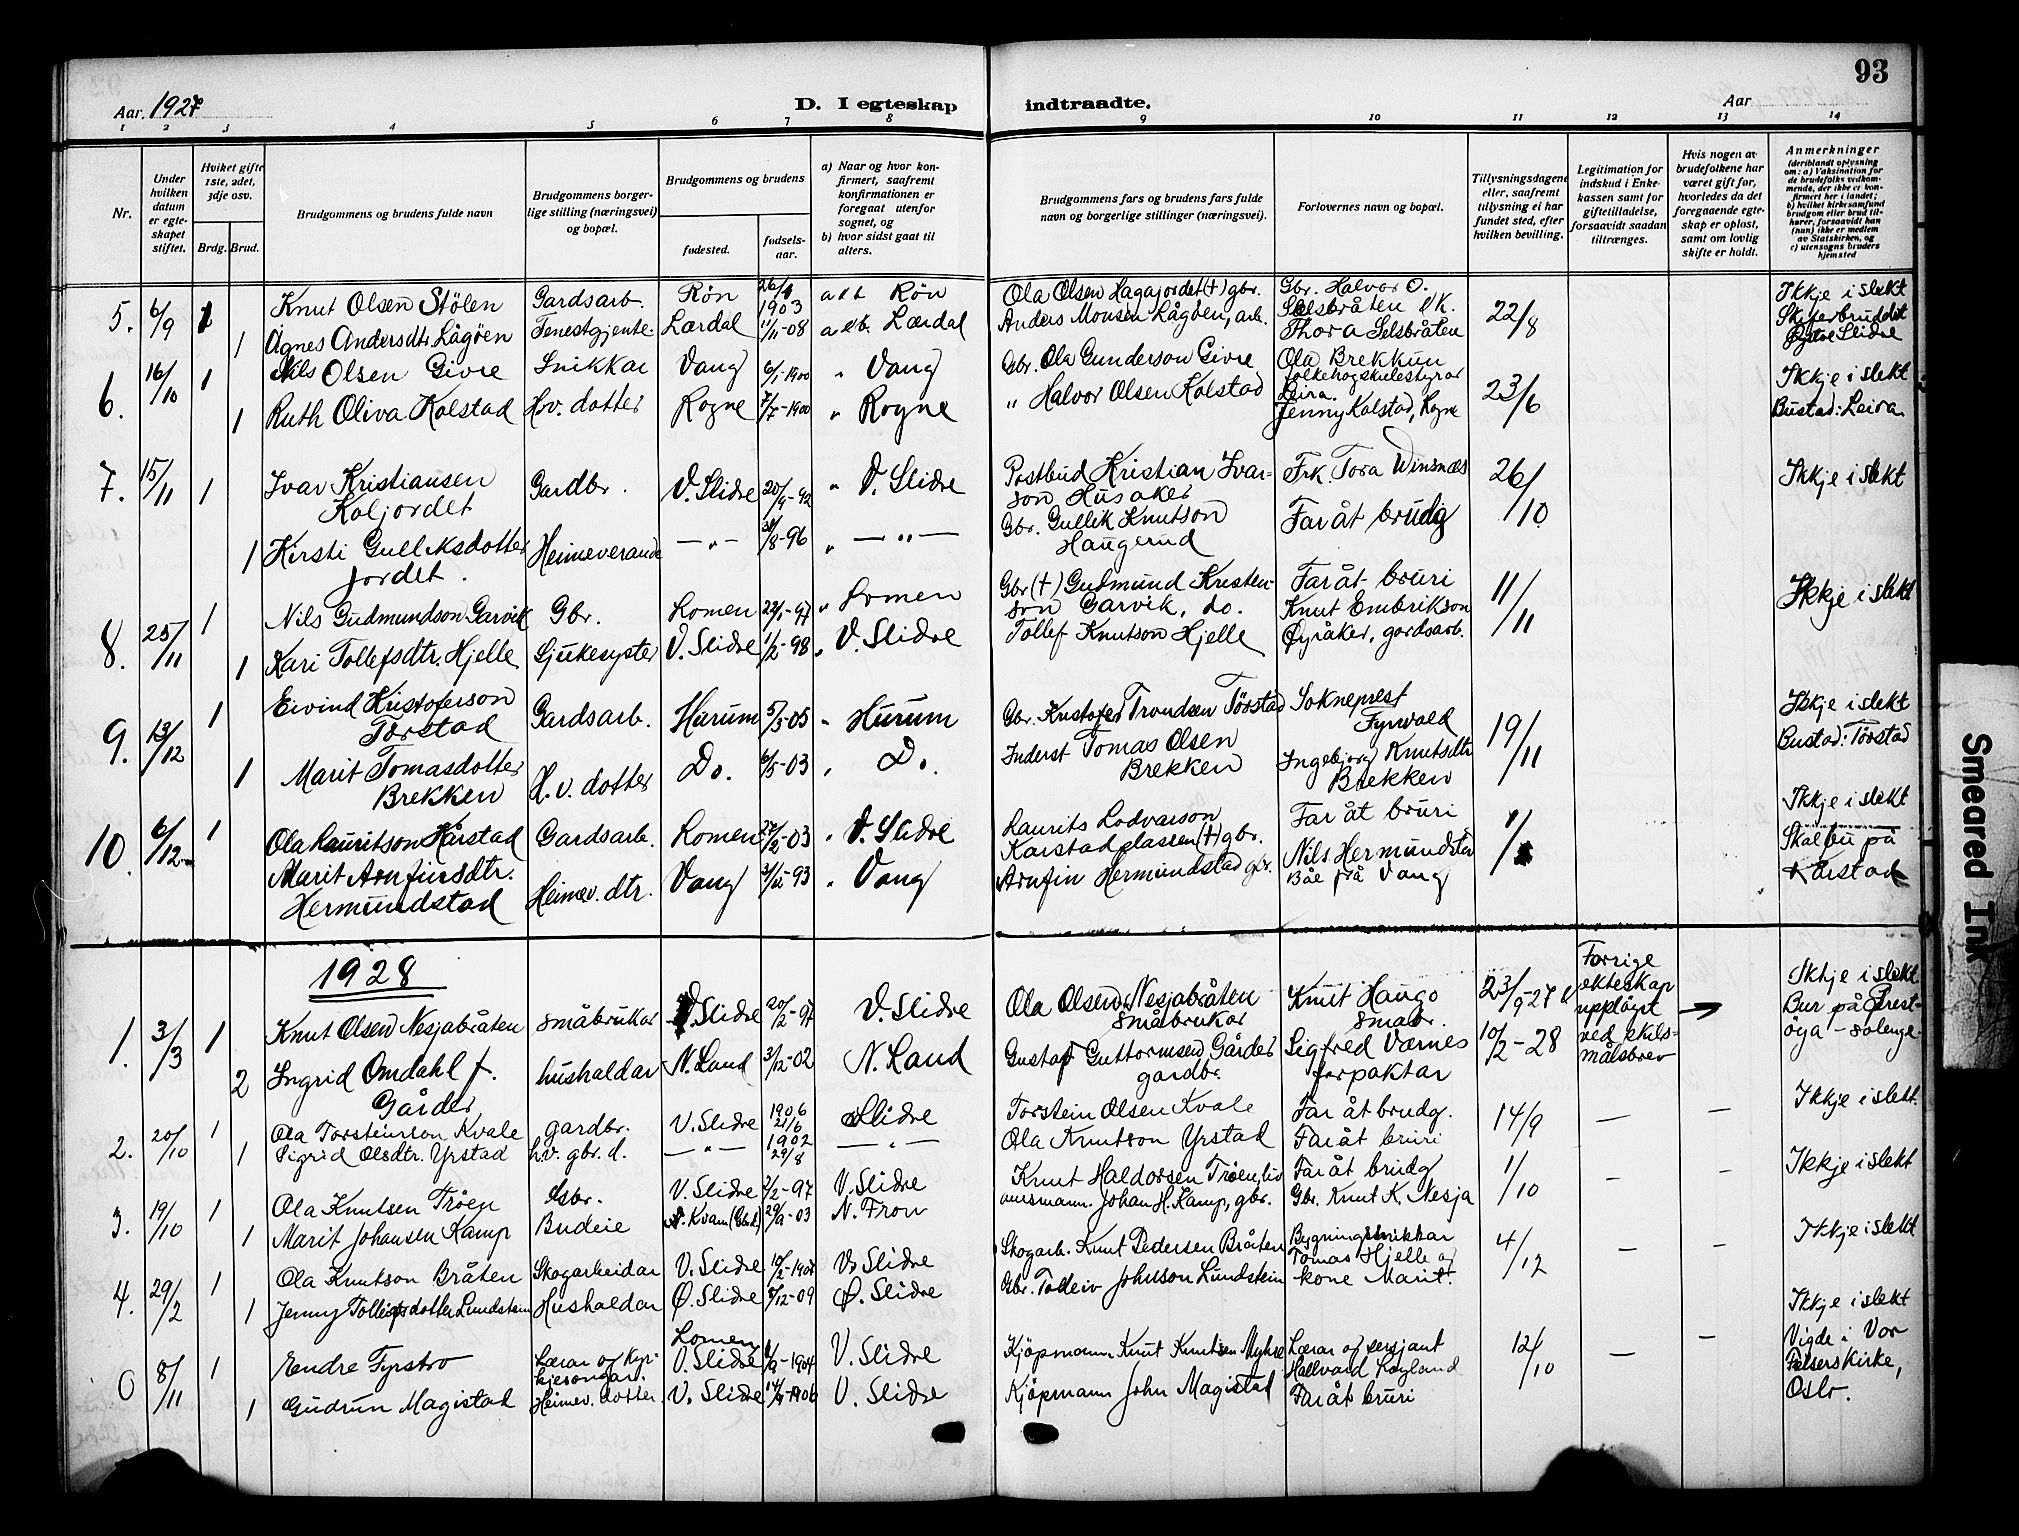 93
Aar. 1927
D. I egteskap indtraadte.
Aar
1 2 3 4 5 6 7 8 9 10 11 12 13 14
Nr.
Under hvilken datum er egteskapet stiftet.
Hviket gifte 1ste, 2det, 3dje osv.
Brdg. Brud.
Brudgommens og brudens fulde navn
Brudgommens borgerlige stilling (næringsvei) og bopæl.
Brudgommens og brudens
fødested.
fødselsaar.
a) Naar og hvor konfirmert, saafremt konfirmationen er foregaat utenfor sognet, og
b) hvor sidst gaat til alters.
Brudgommens fars og brudens fars fulde navn og borgerlige stillinger (næringsvei).
Forlovernes navn og bopæl.
Tillysningsdagene eller, saafremt tillysning ei har fundet sted, efter hvilken bevilling.
Legitimation for indskud i Enkekassen samt for giftetilladelse, forsaavidt saadan tiltrænges.
Hvis nogen av brudefolkene har været gift før, hvorledes da det foregaaende egteskap er opløst, samt om lovlig skifte er holdt.
Anmerkninger
(deriblandt oplysning om: a) Vaksination for de brudefolks vedkommende, der ikke er konfirmert her i landet; b) hvilket kirkesamfund brudgom eller brud tilhører, forsaavidt han (hun) ikke er medlem av Statskirken, og c) utensogns bruders hjemsted
5. 6/9 1 Knut Olsen Stölen Gardsarb. Røn 1903 a & b Røn Ola Olsen Hagajordet (+) gbr. Gbr. Halvor O. Selsbråten 22/8 Ikkje i slekt
1 Agnes Andersdtr. Lågöen Tenestgjente Lærdal 11/11-08 a & b. Lærdal Anders Monsen Lågöen, arb. Thora Selsbråten Skiferbruddet Øystre Slidre
6. 16/10 1 Nils Olsen Givre Snikkar Vang 6/1-1900 " Vang Gbr. Ola Gunderson Givre Ola Brekkun folkehøgskulestyrar Leira. 23/6 Ikkje i slekt
1 Ruth Oliva Kolstad Hv. dotter Rogne 7/7-1900 " Rogne " Halvor Olsen Kolstad Jenny Kolstad, Rogne Bustad: Leira.
7. 15/11 1 Ivar Kristiansen Koljordet Gardbr. V. Slidre 20/9-92 " V. Slidre Postbud Kristian Ivarson Husaker Frk. Tora Winsnes 26/10 Ikkje i slekt
1 Kirsti Gulliksdotter Jordet. Heimeverande — " — /8-96 " — " — Gbr. Gullik Knutson Haugerud Far åt brudg
8. 25/11 1 Nils Gudmundson Garvik Gbr. Lomen 22/1-97 " Lomen Gbr (+) Gudmund Kristenson Garvik, do. Far åt bruri 11/11 Ikkje i slekt
1 Kari Tollefsdtr. Hjelle Sjukesyster V. Slidre 1/2-98 " V. Slidre Tollef Knutson Hjelle Knut Embrikson Øyråker, gardsarb.
9. 13/12 1 Eivind Kristoferson Torstad Gardsarb. Hurum 5/3-05 " Hurum Gbr. Kristofer Trondsen Tørstad Sokneprest Fyrwald 19/11 Ikkje i slekt
1 Marit Tomasdotter Brekken H. v. dotter Do. 6/5-03 " Do. Inderst Tomas Olsen Brekken Ingebjorg Knutsdtr Brekken Bustad: Tørstad
10. 6/12 1 Ola Lauritson Karstad Gardsarb. Lomen 27/2-03 " V. Slidre Laurits Lodvarson Karstadplassen (+) gbr. Far åt bruri Ikkje i slekt
1 Marit Arnfinsdtr. Hermundstad Heimev. dtr. Vang 3/12-93 " Vang Arnfin Hermundstad gbr. Nils Hermundstad Båe frå Vang Skal bu på Karstad
1928
1. 3/3 1 Knut Olsen Nesjabråten småbrukar V. Slidre 20/2-97 V. Slidre Ola Olsen Nesjabråten småbrukar Knut Haugo småbr. 23/9-27 Forrige ekteskap uppløyst ved skilsmålsbrev Ikkje i slekt
2 Ingrid Omdahl f. Gårder hushaldar N. Land 3/12-02 N. Land Gustaf Guttormsen Gårder gardbr. Sigfred Værnes forpaktar 10/2-28 Bur på Prestøya
2. 20/10 1 Ola Torsteinson Kvale gardbr. V. Slidre 1906 21/6 Slidre Torstein Olsen Kvale Far åt brudg. 14/9 — — Ikkje i slekt.
1 Sigrid Olsdtr. Yrstad hv. gbr. d. — " — 1902 29/8 — " — Ola Knutson Yrstad Far åt bruri
3. 19/10 1 Ola Knutsen Trøen Gbr. V. Slidre 2/2-97 V. Slidre Knut Haldorsen Trøen, livøresmann. Far åt brudg 1/10 — — Ikkje i slekt
1 Marit Johansen Kamp Budeie N. Kvam (Gbr.d.) 29/9-03 N. Fron Johan H. Kamp, gbr. Gbr. Knut K. Nesja
4. 29/2 1 Ola Knutson Bråten Skogarbeidar V. Slidre V. Slidre Skogarb. Knut Pedersen Bråten Bygningssnikkar Tomas Hjelle og kone Marit. 4/12 — — Ikkje i slekt
1 Jenny Tolleifsdotter Lundstein Hushaldar Ø. Slidre 8/12-09 Ø. Slidre Gbr. Tolleiv Johnson Lundstein
8/11 1 Endre Fystro Lærar og kyrkjesongar. Lomen V. Slidre 1904 V. Slidre Kjøpmann Knut Knutsen Myhre Lærar og sersjant Hallvard Løyland 12/10 — — Ikkje i slekt
1 Gudrun Magistad Heimev. dotter V. Slidre 1906 V. Slidre Kjøpmann John Magistad Far åt bruri Vigde i Vor Frelsers Kirke, Oslo.
Smeared Ink